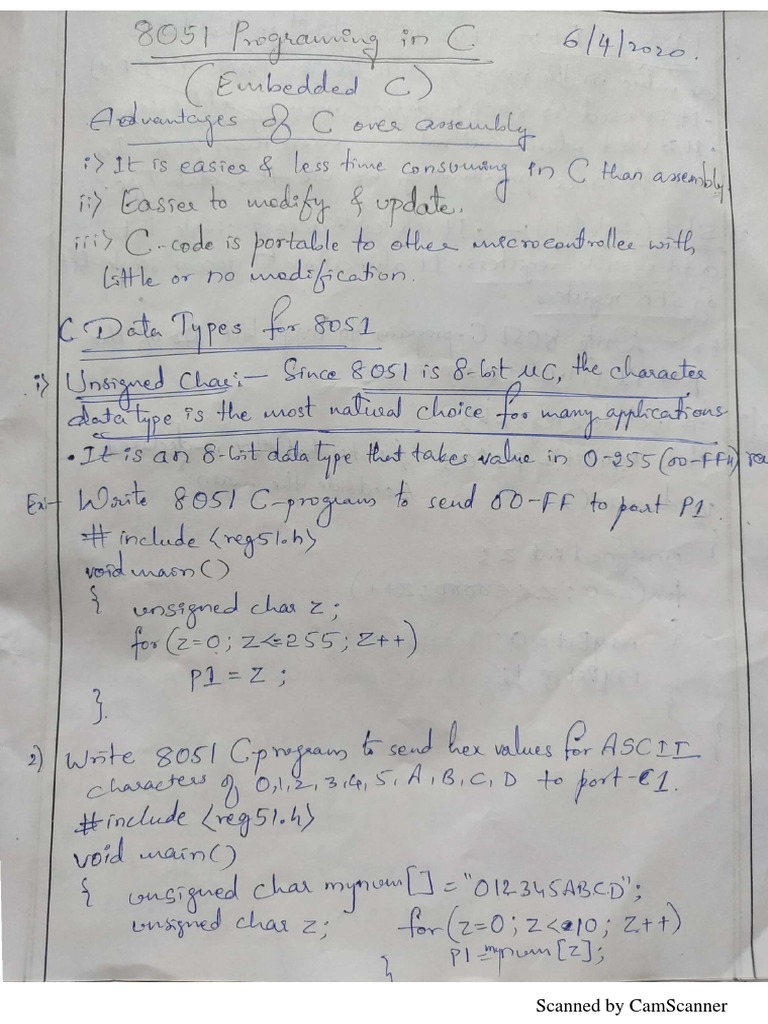 8051 Programing in C
6/4/2020.
(Embedded C)
Advantages of C over assembly
i) It is easier & less time consuming in C than assembly
ii) Easier to modify & update.
iii) C-code is portable to other microcontroller with
little or no modification.
C Data Types for 8051
i) Unsigned Char:- Since 8051 is 8-bit μC, the character
data type is the most natural choice for many applications
• It is an 8-bit data type that takes value in 0-255 (00-FFH)
Ex:- Write 8051 C-program to send 00-FF to port P1.
# include <reg51.h>
void main()
{ unsigned char z;
for(z=0; z<=255; z++)
P1 = z ;
}.
2) Write 8051 C-program to send hex values for ASCII
characters of 0,1,2,3,4,5,A,B,C,D to port-1.
#include <reg51.h>
void main()
{ unsigned char mynum[] = "012345ABCD";
unsigned char z; for(z=0; z<10; z++)
P1=mynum[z];
}
Scanned by CamScanner